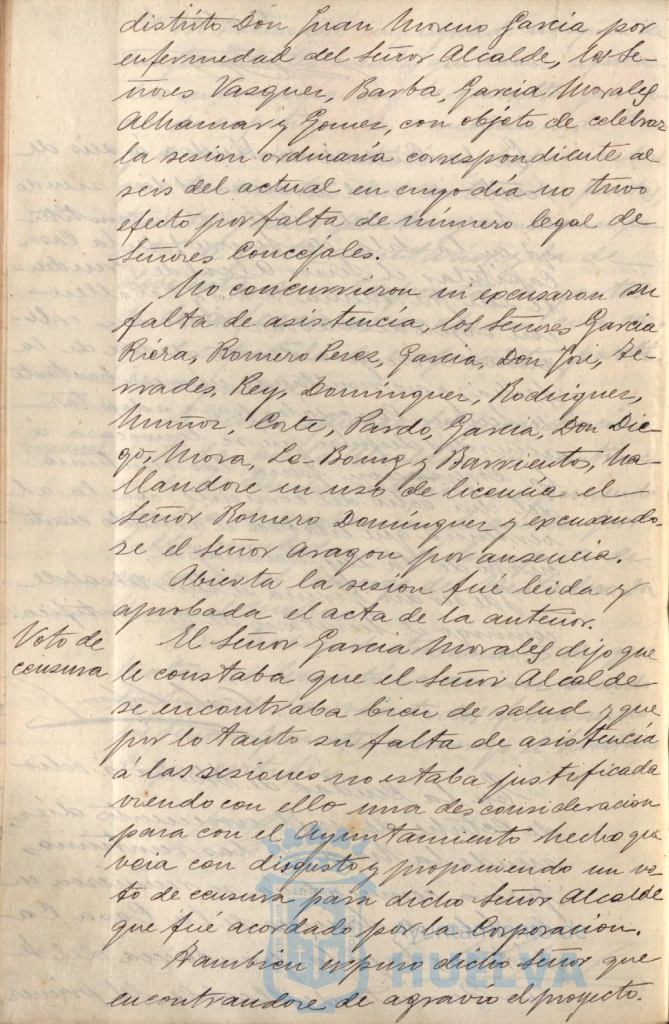 distrito Don Juan Moreno Garcia por
enfermedad del Señor Alcalde, los Se-
ñores Vazquez, Barba, Garcia Morales
Alhamar y Gomez, con objeto de celebrar
la sesion ordinaria correspondiente al
seis del actual en cuyo día no tuvo
efecto por falta de número legal de
Señores Concejales.
No concurrieron ni excusaron su
falta de asistencia, los Señores Garcia
Riera, Romero Perez, Garcia, Don José,
Rey, Dominguez, Rodriguez,
Muñoz, Corte, Pardo, Garcia, Don Die-
go, Mora, Le-Bourg y Barrientos, ha-
llandose en uso de licencia el
Señor Romero Domínguez y excusando-
se el Señor Aragon por ausencia.
Abierta la sesion fué leida y
aprobada el acta de la anterior.
Voto de
censura
El Señor Garcia Morales dijo que
le constaba que el Señor Alcalde
se encontraba bien de salud y que
por lo tanto su falta de asistencia
á las sesiones no estaba justificada
viendo con ello una desconsideracion
para con el Ayuntamiento hecho que
veia con disgusto y proponiendo un vo-
to de censura para dicho Señor Alcalde
que fué acordado por la Corporacion.
Tambien expuso dicho Señor que
encontrandose de agravio el proyecto.
Ayuntamiento
HUELVA